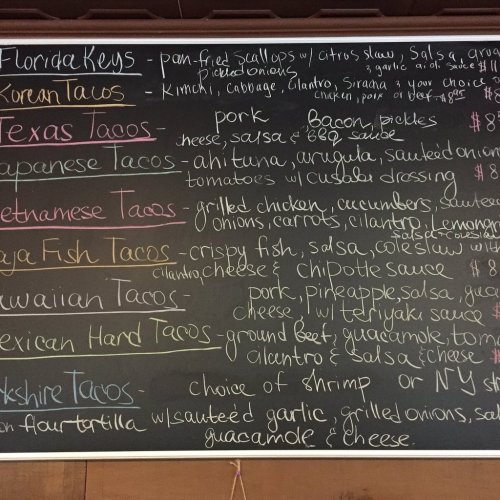 Florida Keys - pan-fried scallops w/ citrus slaw, salsa,
pickled onions & garlic aioli sauce $11
Korean Tacos - Kimchi, cabbage, cilantro, Siracha & your choice
chicken, pork or beef - $8
Texas Tacos - pork Bacon, pickles $8
cheese, salsa & BBQ sauce
apanese Tacos - ahi tuna, arugula, sauteéd onion
tomatoes w/ cusabi dressing $8
etnamese Tacos - grilled chicken, cucumbers, sauteed
onions, carrots, cilantro Lemongr
aja Fish Tacos - crispy fish, salsa, coleslaw with
cilantro, cheese & chipotle sauce $8
awaiian Tacos - pork, pineapple, salsa, guac
cheese, w/ teriyaki sauce $
exican Hard Tacos - ground beef, guacamole, toma
cilantro & salsa & cheese $
rkshire Tacos - choice of shrimp or NY st
on flour tortilla w/ sauteéd garlic, grilled onions, sal
guacamole & cheese.